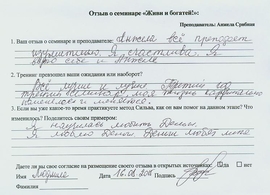 Отзыв о семинаре «Живи и богатей!»:
Преподаватель: Анжела Срабиан
1. Ваш отзыв о семинаре и преподавателе: Анжела всё преподает
изумительно. Я счастлива. Я
верю себе и Анжеле
2. Тренинг превзошел ваши ожидания или наоборот?
Всё лучше и лучше Третий год
семинаров моя жизнь
меняется.
3. Если вы уже какое-то время практикуете метод Сильва, как он вам помог на данном этапе? Что
изменилось? Поделитесь своим примером:
Я научилась любить Деньги.
Я люблю Деньги Деньги любят меня
Даете ли вы свое согласие на размещение своего отзыва в открытых источниках: да нет
Имя Людмила Дата 16.03. Подпись
Фамилия